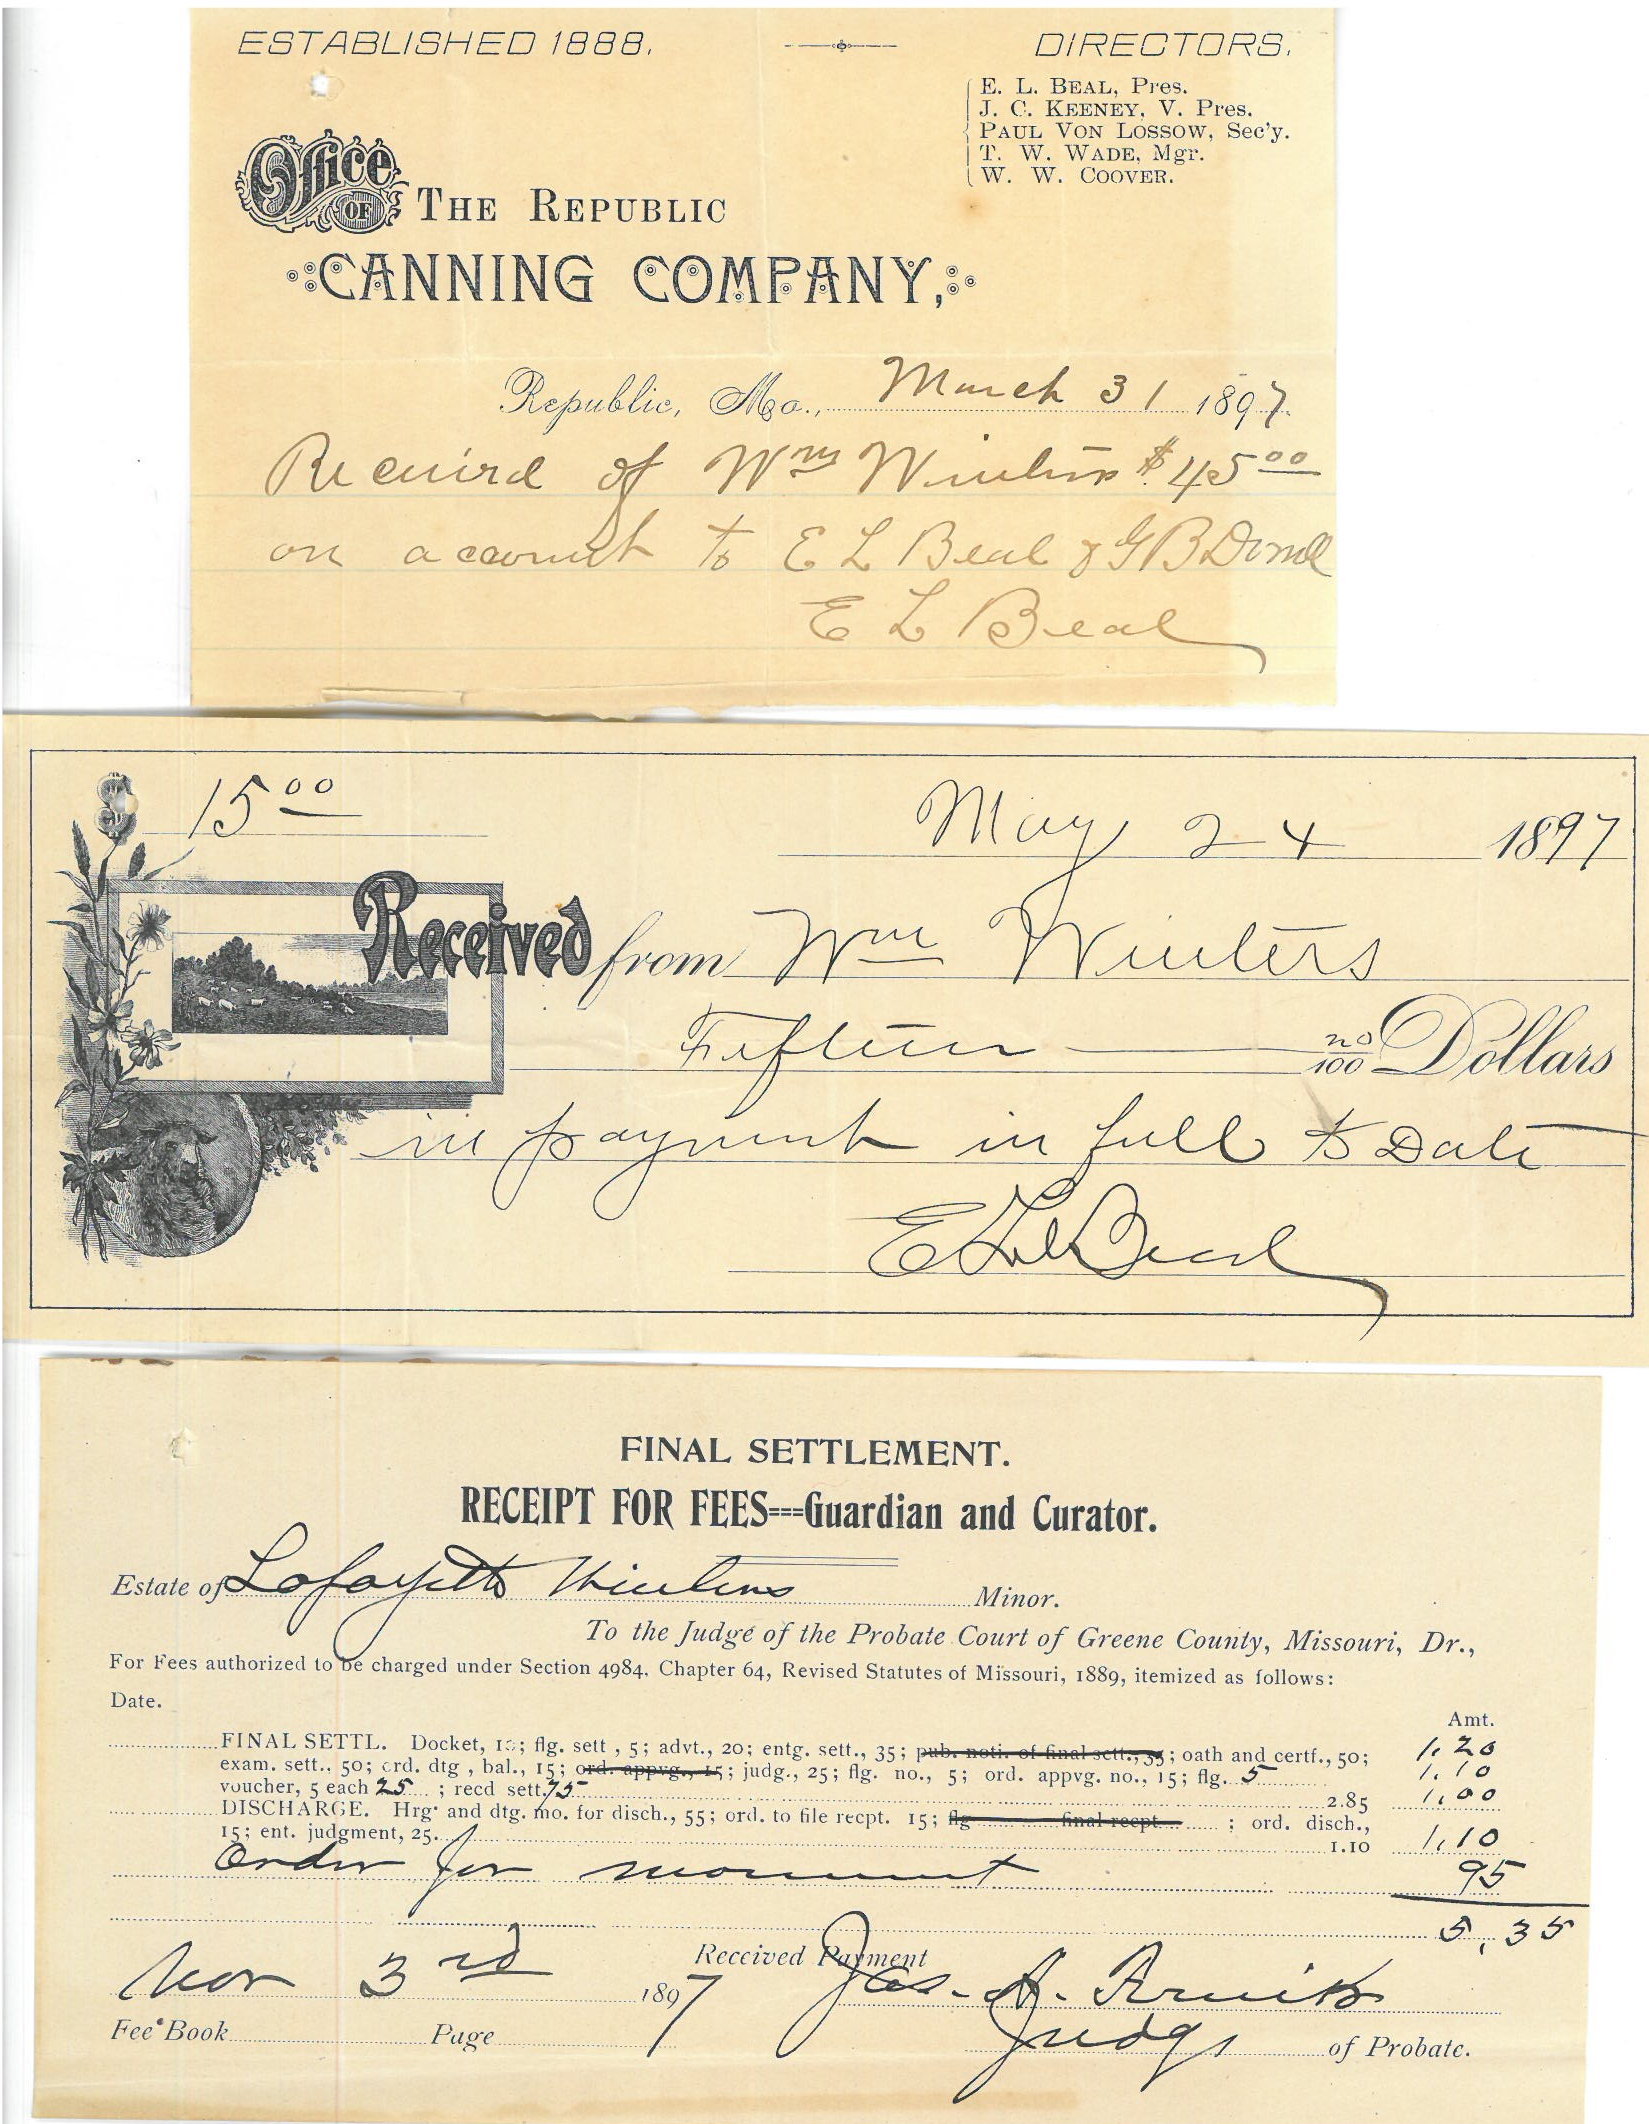 ESTABLISHED 1888.
DIRECTORS.
E. L. BEAL, Pres.
J. C. KEENEY, V. Pres.
PAUL VON LOSSOW, Sec'y.
T. W. WADE, Mgr.
W. W. COOVER.
Office OF THE REPUBLIC
CANNING COMPANY,
Republic, Mo., March 31 1897.
Received of Wm Winters $45 00
on account to E L Beal & G B
E L Beal
$ 15 00
May 24 1897
Received from Wm Winters
Fifteen no/100 Dollars
in payment in full to Date
E L Beal
FINAL SETTLEMENT.
RECEIPT FOR FEES===Guardian and Curator.
Estate of Lafayette Winters Minor.
To the Judge of the Probate Court of Greene County, Missouri, Dr.,
For Fees authorized to be charged under Section 4984. Chapter 64, Revised Statutes of Missouri, 1889, itemized as follows:
Date.
Amt.
FINAL SETTL. Docket, 10; flg. sett , 5; advt., 20; entg. sett., 35; pub. noti. of final sett., 35; oath and certf., 50; 1.20
exam. sett.. 50; ord. dtg , bal., 15; ord. appvg., 15; judg., 25; flg. no., 5; ord. appvg. no., 15; flg. 5 1.10
voucher, 5 each 25 ; recd sett. 75 2.85 1.00
DISCHARGE. Hrg. and dtg. mo. for disch., 55; ord. to file recpt. 15; flg final recpt. ; ord. disch.,
15; ent. judgment, 25. 1.10 1.10
Order for monument 95
5.35
Nov 3rd 1897
Received Payment
Jas. A.
Fee Book Page
Judge of Probate.